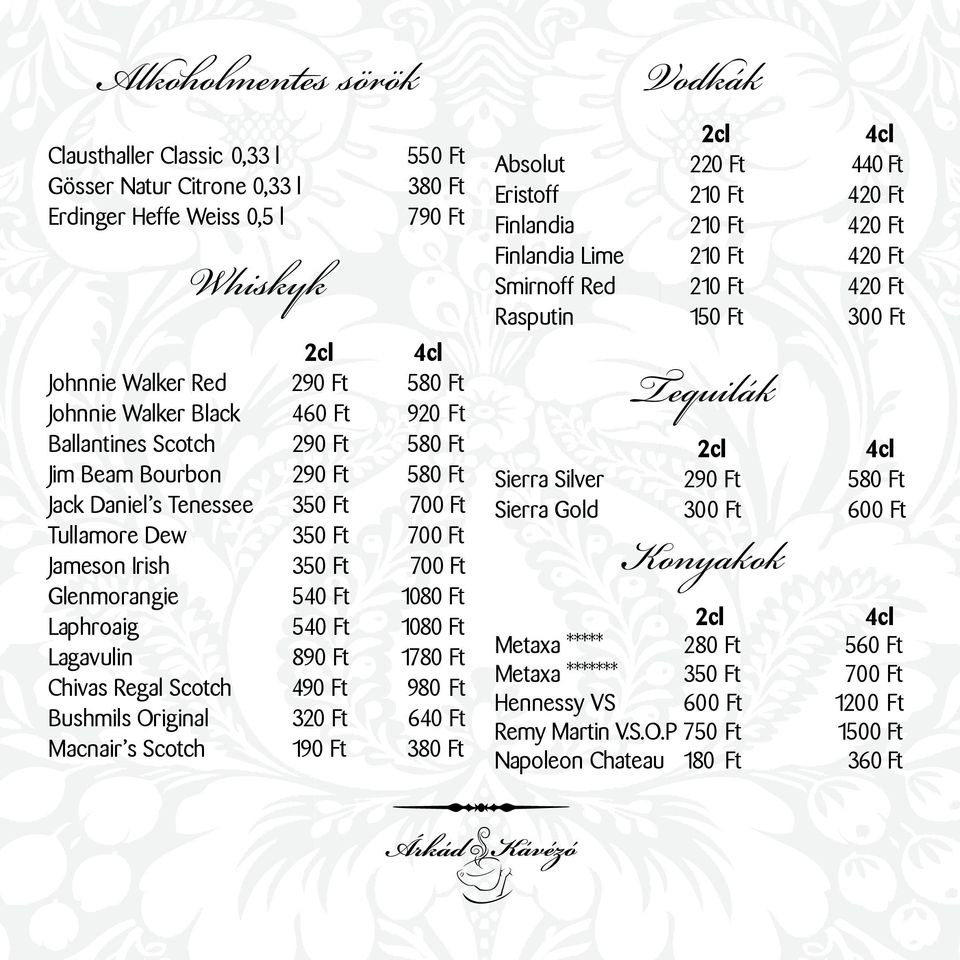 Alkoholmentes sörök
Clausthaller Classic 0,33 l 550 Ft
Gösser Natur Citrone 0,33 l 380 Ft
Erdinger Heffe Weiss 0,5 l 790 Ft
Whiskyk
2cl 4cl
Johnnie Walker Red 290 Ft 580 Ft
Johnnie Walker Black 460 Ft 920 Ft
Ballantines Scotch 290 Ft 580 Ft
Jim Beam Bourbon 290 Ft 580 Ft
Jack Daniel's Tenessee 350 Ft 700 Ft
Tullamore Dew 350 Ft 700 Ft
Jameson Irish 350 Ft 700 Ft
Glenmorangie 540 Ft 1080 Ft
Laphroaig 540 Ft 1080 Ft
Lagavulin 890 Ft 1780 Ft
Chivas Regal Scotch 490 Ft 980 Ft
Bushmils Original 320 Ft 640 Ft
Macnair's Scotch 190 Ft 380 Ft
Vodkák
2cl 4cl
Absolut 220 Ft 440 Ft
Eristoff 210 Ft 420 Ft
Finlandia 210 Ft 420 Ft
Finlandia Lime 210 Ft 420 Ft
Smirnoff Red 210 Ft 420 Ft
Rasputin 150 Ft 300 Ft
Tequilák
2cl 4cl
Sierra Silver 290 Ft 580 Ft
Sierra Gold 300 Ft 600 Ft
Konyakok
2cl 4cl
Metaxa ***** 280 Ft 560 Ft
Metaxa ******* 350 Ft 700 Ft
Hennessy VS 600 Ft 1200 Ft
Remy Martin V.S.O.P 750 Ft 1500 Ft
Napoleon Chateau 180 Ft 360 Ft
Árkád Kávézó